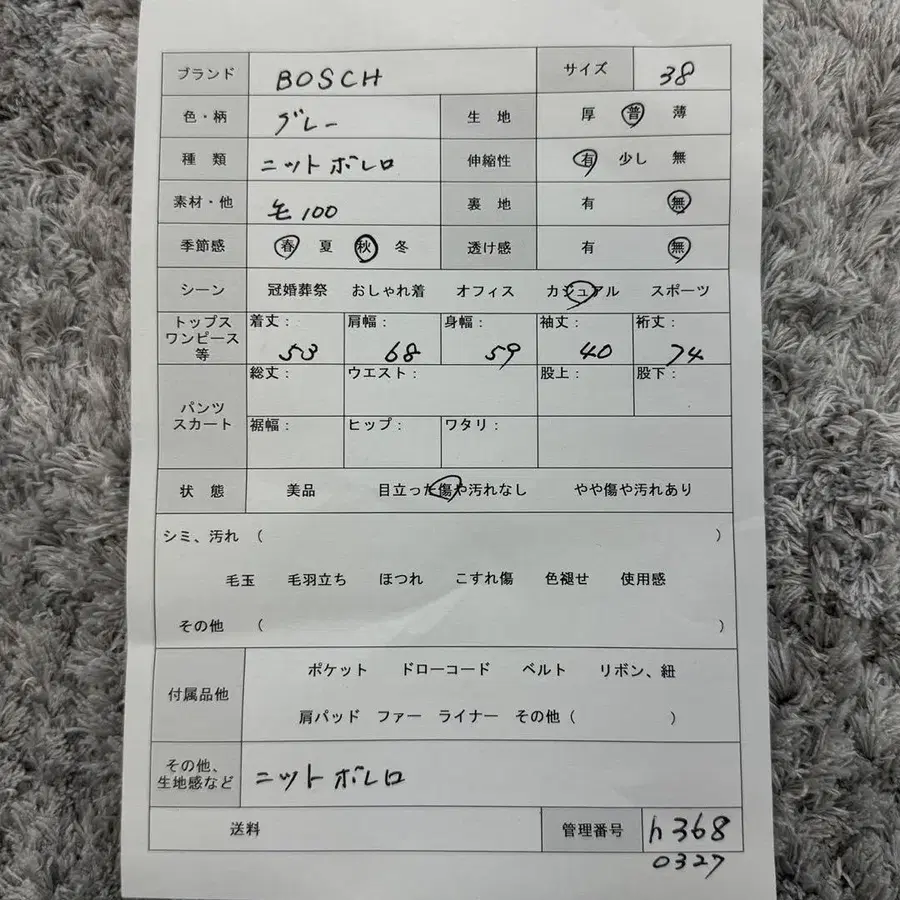 ブランド BOSCH サイズ 38
色・柄 グレー 生地 厚 普 薄
種類 ニットボレロ 伸縮性 有 少し 無
素材・他 毛100 裏地 有 無
季節感 春 夏 秋 冬 透け感 有 無
シーン 冠婚葬祭 おしゃれ着 オフィス カジュアル スポーツ
トップス ワンピース 等 着丈: 53 肩幅: 68 身幅: 59 袖丈: 40 裄丈: 74
パンツ スカート 総丈: ウエスト: 股上: 股下:
裾幅: ヒップ: ワタリ:
状態 美品 目立った傷や汚れなし やや傷や汚れあり
シミ、汚れ ( )
毛玉 毛羽立ち ほつれ こすれ傷 色褪せ 使用感
その他 ( )
付属品他 ポケット ドローコード ベルト リボン、紐
肩パッド ファー ライナー その他 ( )
その他、生地感など ニットボレロ
送料 管理番号 h368
0327